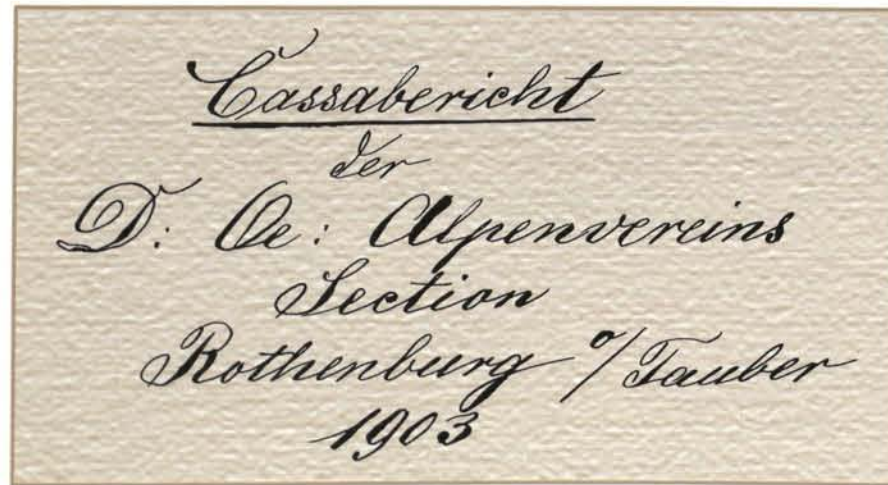 Cassabericht
der
D: Oe: Alpenvereins
Section
Rothenburg o/Tauber
1903